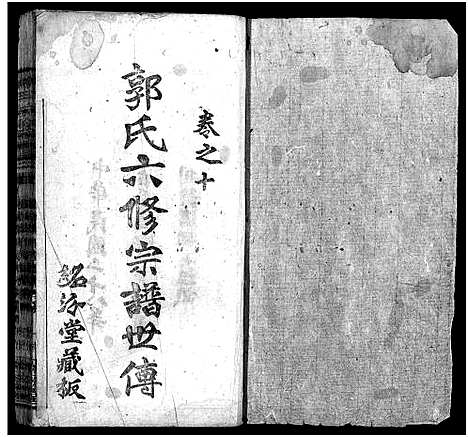 卷之十
郭氏六修宗譜世傳
汾堂藏板